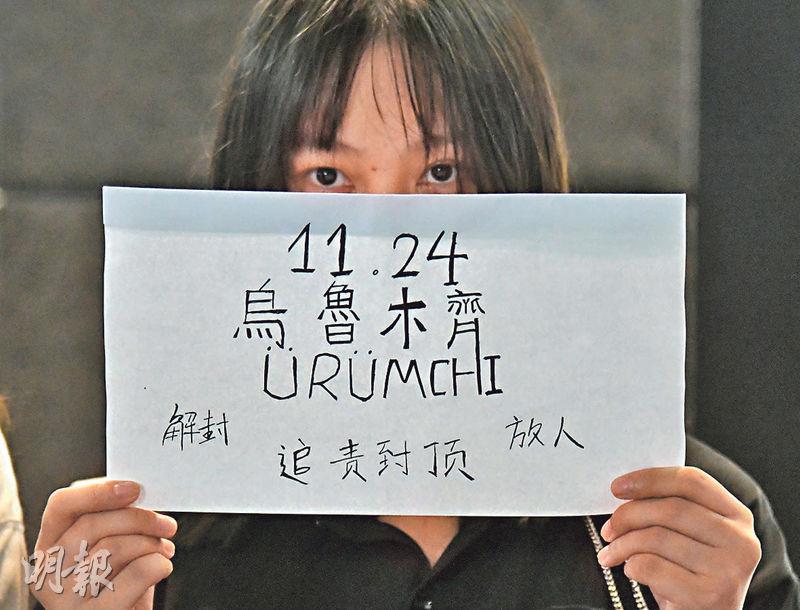 11.24
烏魯木齊
ÜRÜMCHI
解封 放人
追责封顶
明報